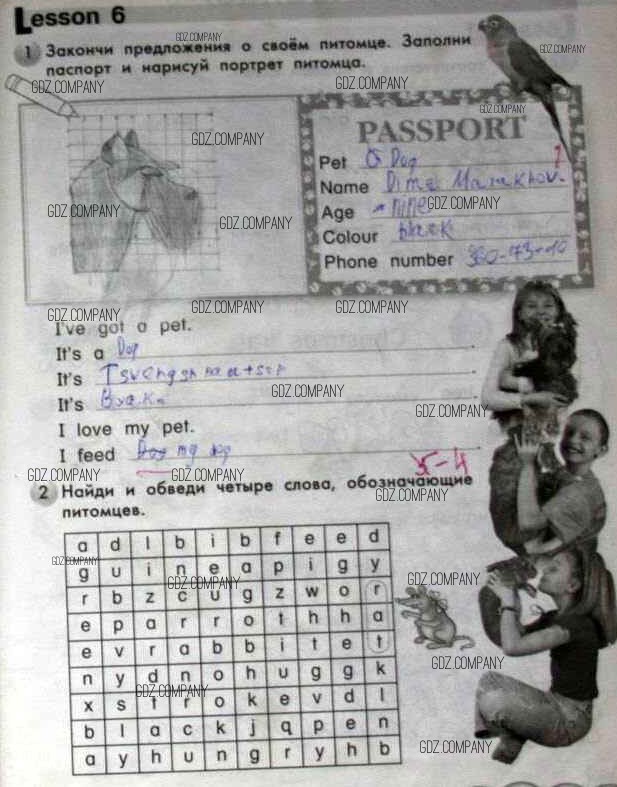 Lesson 6
1 Закончи предложения о своём питомце. Заполни
паспорт и нарисуй портрет питомца.
PASSPORT
Pet Dog
Name Dima
Age nine
Colour black
Phone number
I've got a pet.
It's a Dog
It's
It's
I love my pet.
I feed my dog
5-4
2 Найди и обведи четыре слова, обозначающие
питомцев.
a d l b i b f e e d
g u i n e a p i g y
r b z c u g z w o r
e p a r r o t h h a
e v r a b b i t e t
n y d n o h u g g k
x s t r o k e v d l
b l a c k j q p e n
a y h u n g r y h b
GDZ.COMPANY